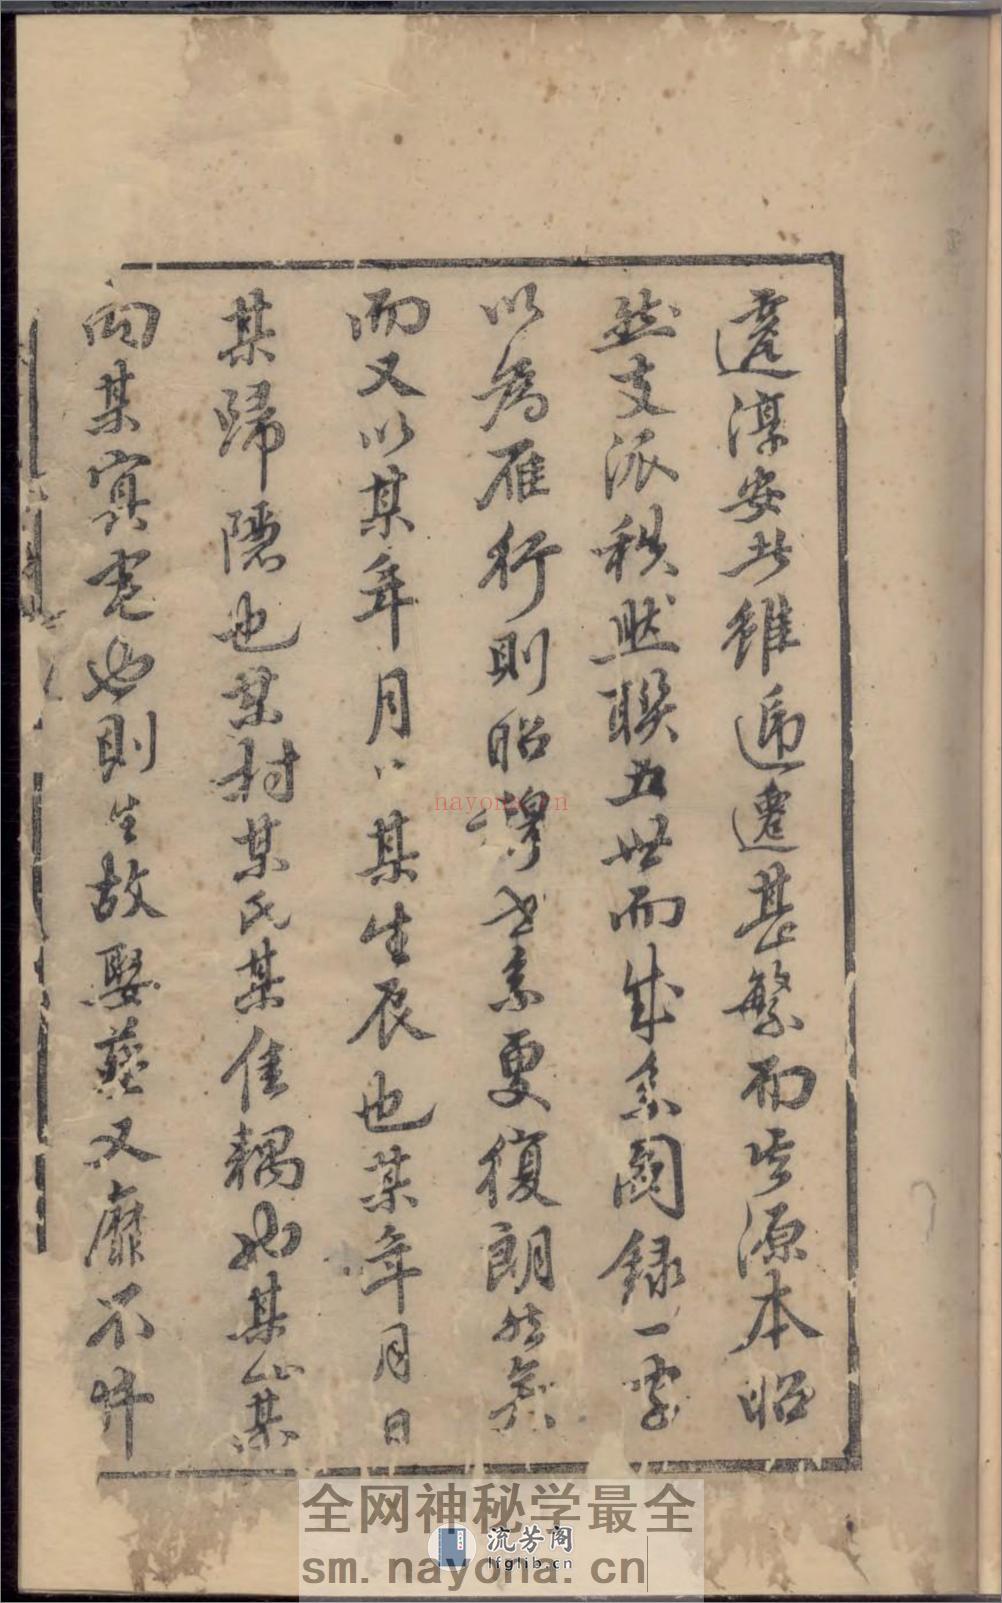 遷淳安此雖遞遷甚繁而其源本昭
然支派秩然聯五世而成系圖錄一字
以為雁行則昭穆世系更復朗然矣
而又以某年月日某生辰也某年月日
某歸隱也某村某氏某佳耦也某山某
向某窀也則生故娶葬又靡不井
nayona.cn
全网神秘学最全
流芳阁
lfglib.cn
sm.nayona.cn